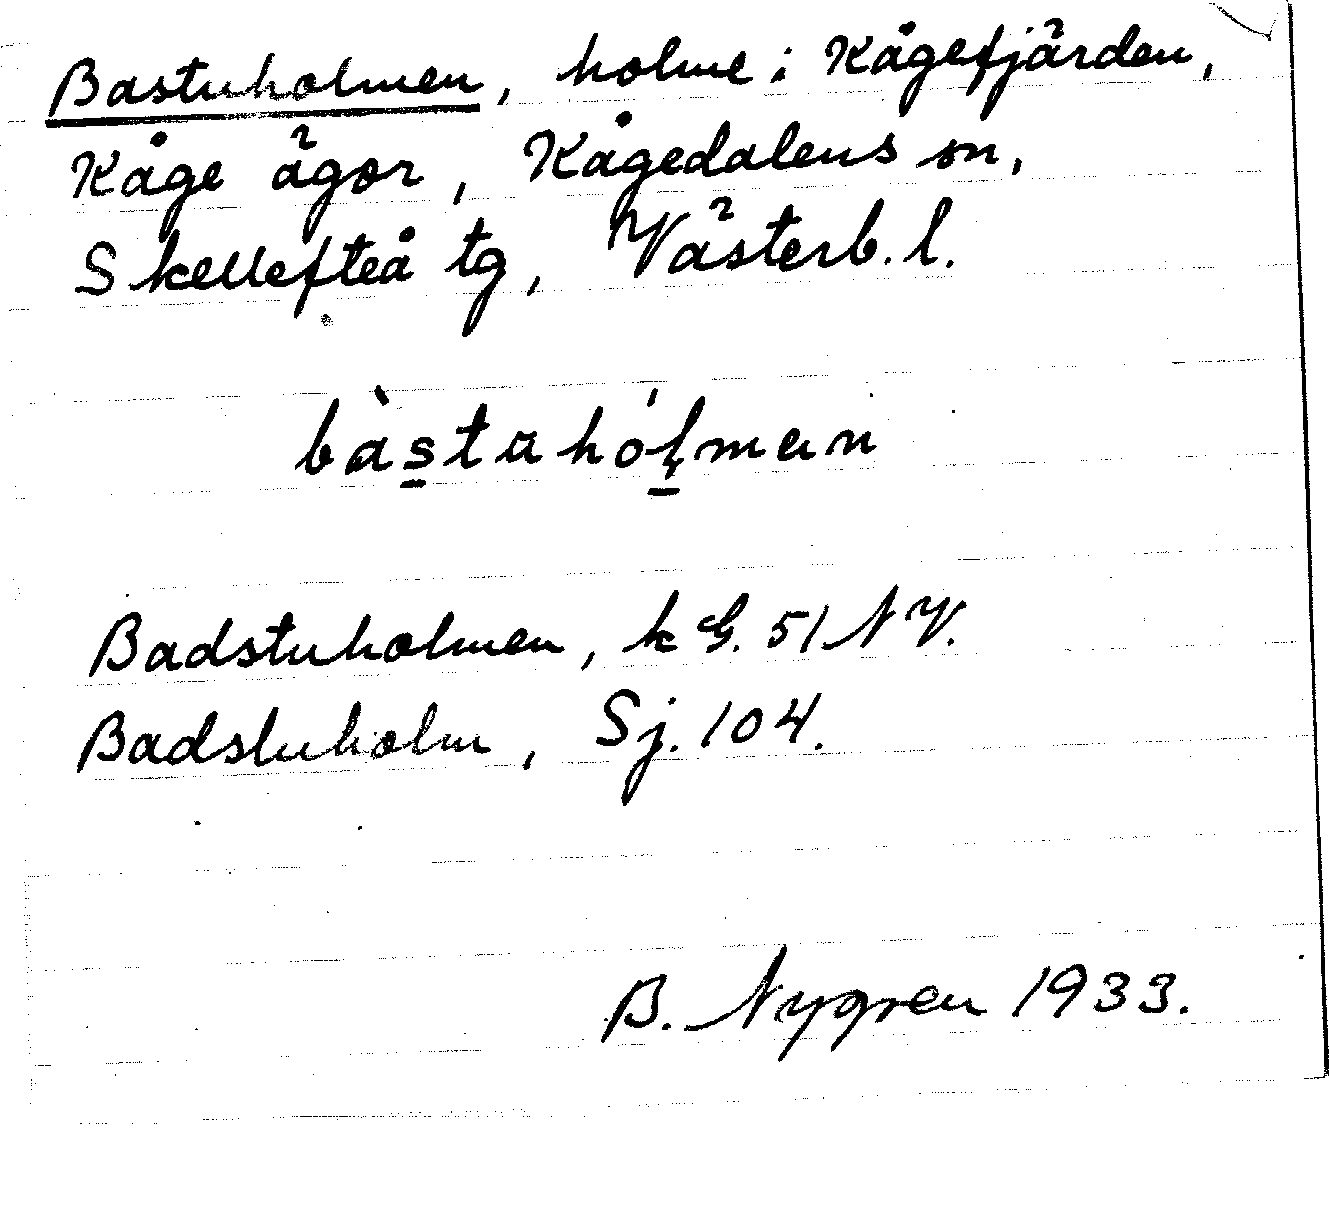 Bastuholmen, holme i Kågefjärden,
Kåge ägor, Kågedalens sn,
Skellefteå tg, Västerb. l.
bàstahólman
Badstuholmen, kG. 51 NV.
Badstuholm, Sj. 104.
B. Nygren 1933.